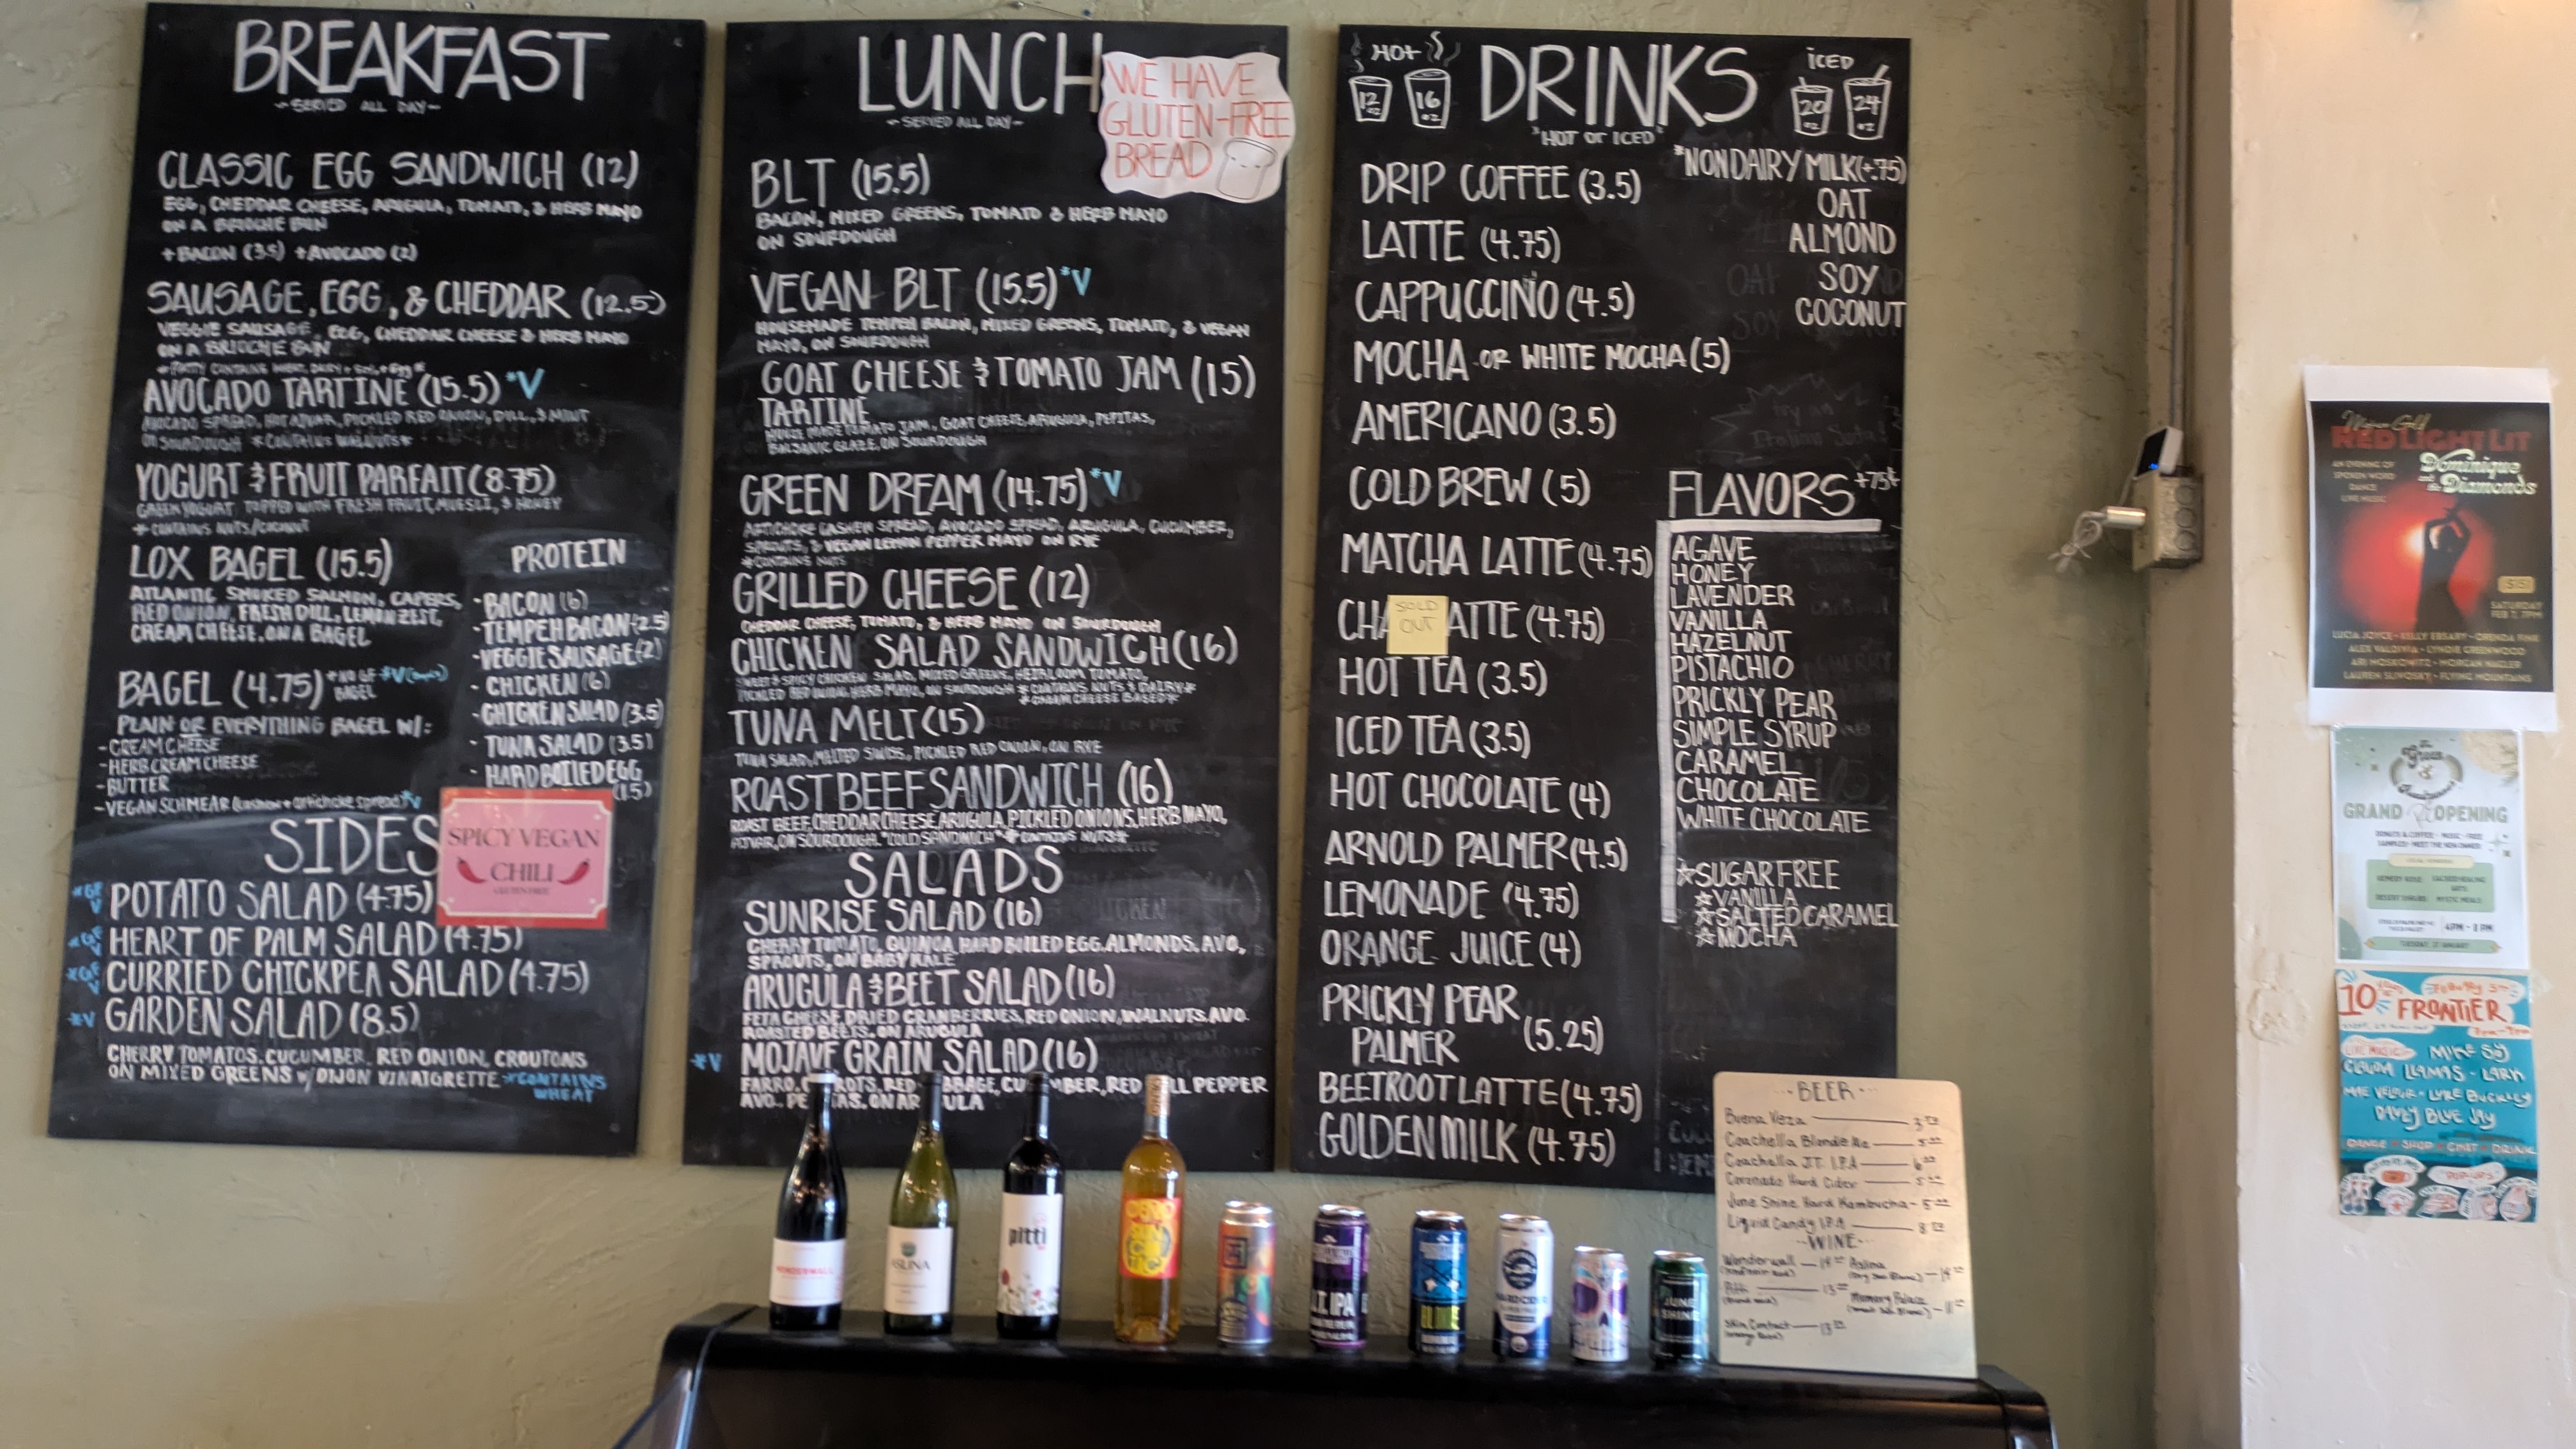 BREAKFAST
~ SERVED ALL DAY ~
CLASSIC EGG SANDWICH (12)
EGG, CHEDDAR CHEESE, ARUGULA, TOMATO, & HERB MAYO
ON A BRIOCHE BUN
+BACON (3.5) +AVOCADO (2)
SAUSAGE, EGG, & CHEDDAR (12.5)
VEGGIE SAUSAGE, EGG, CHEDDAR CHEESE & HERB MAYO
ON A BRIOCHE BUN
AVOCADO TARTINE (15.5) *V
AVOCADO SPREAD, HOT AJVAR, PICKLED RED ONION, DILL, & MINT
ON SOURDOUGH *CONTAINS WALNUTS*
YOGURT & FRUIT PARFAIT (8.75)
GREEK YOGURT TOPPED WITH FRESH FRUIT, MUESLI, & HONEY
*CONTAINS NUTS/COCONUT
LOX BAGEL (15.5)
ATLANTIC SMOKED SALMON, CAPERS,
RED ONION, FRESH DILL, LEMON ZEST,
CREAM CHEESE, ON A BAGEL
BAGEL (4.75) *NO GF BAGEL
PLAIN OR EVERYTHING BAGEL W/:
-CREAM CHEESE
-HERB CREAM CHEESE
-BUTTER
-VEGAN SCHMEAR (cashew + artichoke spread) *V
PROTEIN
-BACON (6)
-TEMPEH BACON (2.5)
-VEGGIE SAUSAGE (2)
- CHICKEN (6)
-CHICKEN SALAD (3.5)
- TUNA SALAD (3.5)
- HARD BOILED EGG
(1.5)
SIDES
SPICY VEGAN
CHILI
GLUTEN FREE
*GF V POTATO SALAD (4.75)
*GF V HEART OF PALM SALAD (4.75)
*GF V CURRIED CHICKPEA SALAD (4.75)
*V GARDEN SALAD (8.5)
CHERRY TOMATOS, CUCUMBER, RED ONION, CROUTONS
ON MIXED GREENS W/ DIJON VINAIGRETTE *CONTAINS
WHEAT
LUNCH
~ SERVED ALL DAY ~
WE HAVE
GLUTEN-FREE
BREAD
BLT (15.5)
BACON, MIXED GREENS, TOMATO & HERB MAYO
ON SOURDOUGH
VEGAN BLT (15.5) *V
HOUSEMADE TEMPEH BACON, MIXED GREENS, TOMATO, & VEGAN
MAYO, ON SOURDOUGH
GOAT CHEESE & TOMATO JAM (15)
TARTINE
HOUSE MADE TOMATO JAM, GOAT CHEESE, ARUGULA, PEPITAS,
BALSAMIC GLAZE, ON SOURDOUGH
GREEN DREAM (14.75) *V
ARTICHOKE CASHEW SPREAD, AVOCADO SPREAD, ARUGULA, CUCUMBER,
SPROUTS, & VEGAN LEMON PEPPER MAYO ON RYE
*CONTAINS NUTS
GRILLED CHEESE (12)
CHEDDAR CHEESE, TOMATO, & HERB MAYO ON SOURDOUGH
CHICKEN SALAD SANDWICH (16)
SWEET & SPICY CHICKEN SALAD, MIXED GREENS, HEIRLOOM TOMATO,
PICKLED RED ONION, HERB MAYO, ON SOURDOUGH *CONTAINS NUTS & DAIRY*
*CREAM CHEESE BASED*
TUNA MELT (15)
TUNA SALAD, MELTED SWISS, PICKLED RED ONION, ON RYE
ROAST BEEF SANDWICH (16)
ROAST BEEF, CHEDDAR CHEESE, ARUGULA, PICKLED ONIONS, HERB MAYO,
AJVAR, ON SOURDOUGH. *COLD SANDWICH* *CONTAINS NUTS*
SALADS
SUNRISE SALAD (16)
CHERRY TOMATO, QUINOA, HARD BOILED EGG, ALMONDS, AVO,
SPROUTS, ON BABY KALE
ARUGULA & BEET SALAD (16)
FETA CHEESE, DRIED CRANBERRIES, RED ONION, WALNUTS, AVO.
ROASTED BEETS, ON ARUGULA
*V MOJAVE GRAIN SALAD (16)
FARRO, RED PEPPER
AVO.
HOT
12 oz
16 oz
DRINKS
*HOT or ICED*
ICED
20 oz
24 oz
DRIP COFFEE (3.5)
LATTE (4.75)
CAPPUCCINO (4.5)
MOCHA OR WHITE MOCHA (5)
AMERICANO (3.5)
COLD BREW (5)
MATCHA LATTE (4.75)
CHA ATTE (4.75)
SOLD
OUT
HOT TEA (3.5)
ICED TEA (3.5)
HOT CHOCOLATE (4)
ARNOLD PALMER (4.5)
LEMONADE (4.75)
ORANGE JUICE (4)
PRICKLY PEAR
PALMER (5.25)
BEETROOT LATTE (4.75)
GOLDEN MILK (4.75)
*NONDAIRY MILK (+.75)
OAT
ALMOND
SOY
COCONUT
FLAVORS +75¢
AGAVE
HONEY
LAVENDER
VANILLA
HAZELNUT
PISTACHIO
PRICKLY PEAR
SIMPLE SYRUP
CARAMEL
CHOCOLATE
WHITE CHOCOLATE
☆SUGAR FREE
☆VANILLA
☆SALTED CARAMEL
☆MOCHA
BEER
Buena Veza
Coachella Blonde Ale
Coachella J.T. I.P.A
Coronado Hard Cider
June Shine Hard Kombucha
Liquid Candy I.P.A
WINE
Wonderwall
Aslina
Pitti
Memory Palace
Skin Contact
WONDERWALL
ASLINA
pitti
J.T. IPA
HARD CIDER
JUNE
SHINE
RED LIGHT LIT
AN EVENING OF
SPOKEN WORD
DANCE
LIVE MUSIC
Dominique
and the Diamonds
$15
SATURDAY
FEB 7, 7PM
LUCIA JOYCE - KELLY EBSARY - ORENDA FINK
ALEX VALDIVIA - LYNDIE GREENWOOD
ARI MOSKOWITZ - MORGAN NAGLER
LAUREN SLIVOSKY - FLYING MOUNTAINS
GRAND RE OPENING
10
FRONTIER
LIVE MUSIC
CLAUDIA LLAMAS - LARK
MAE VELOUR - LUKE BUCKLEY
DAVEY BLUE JAY
DANCE SHOP CHAT DRINK